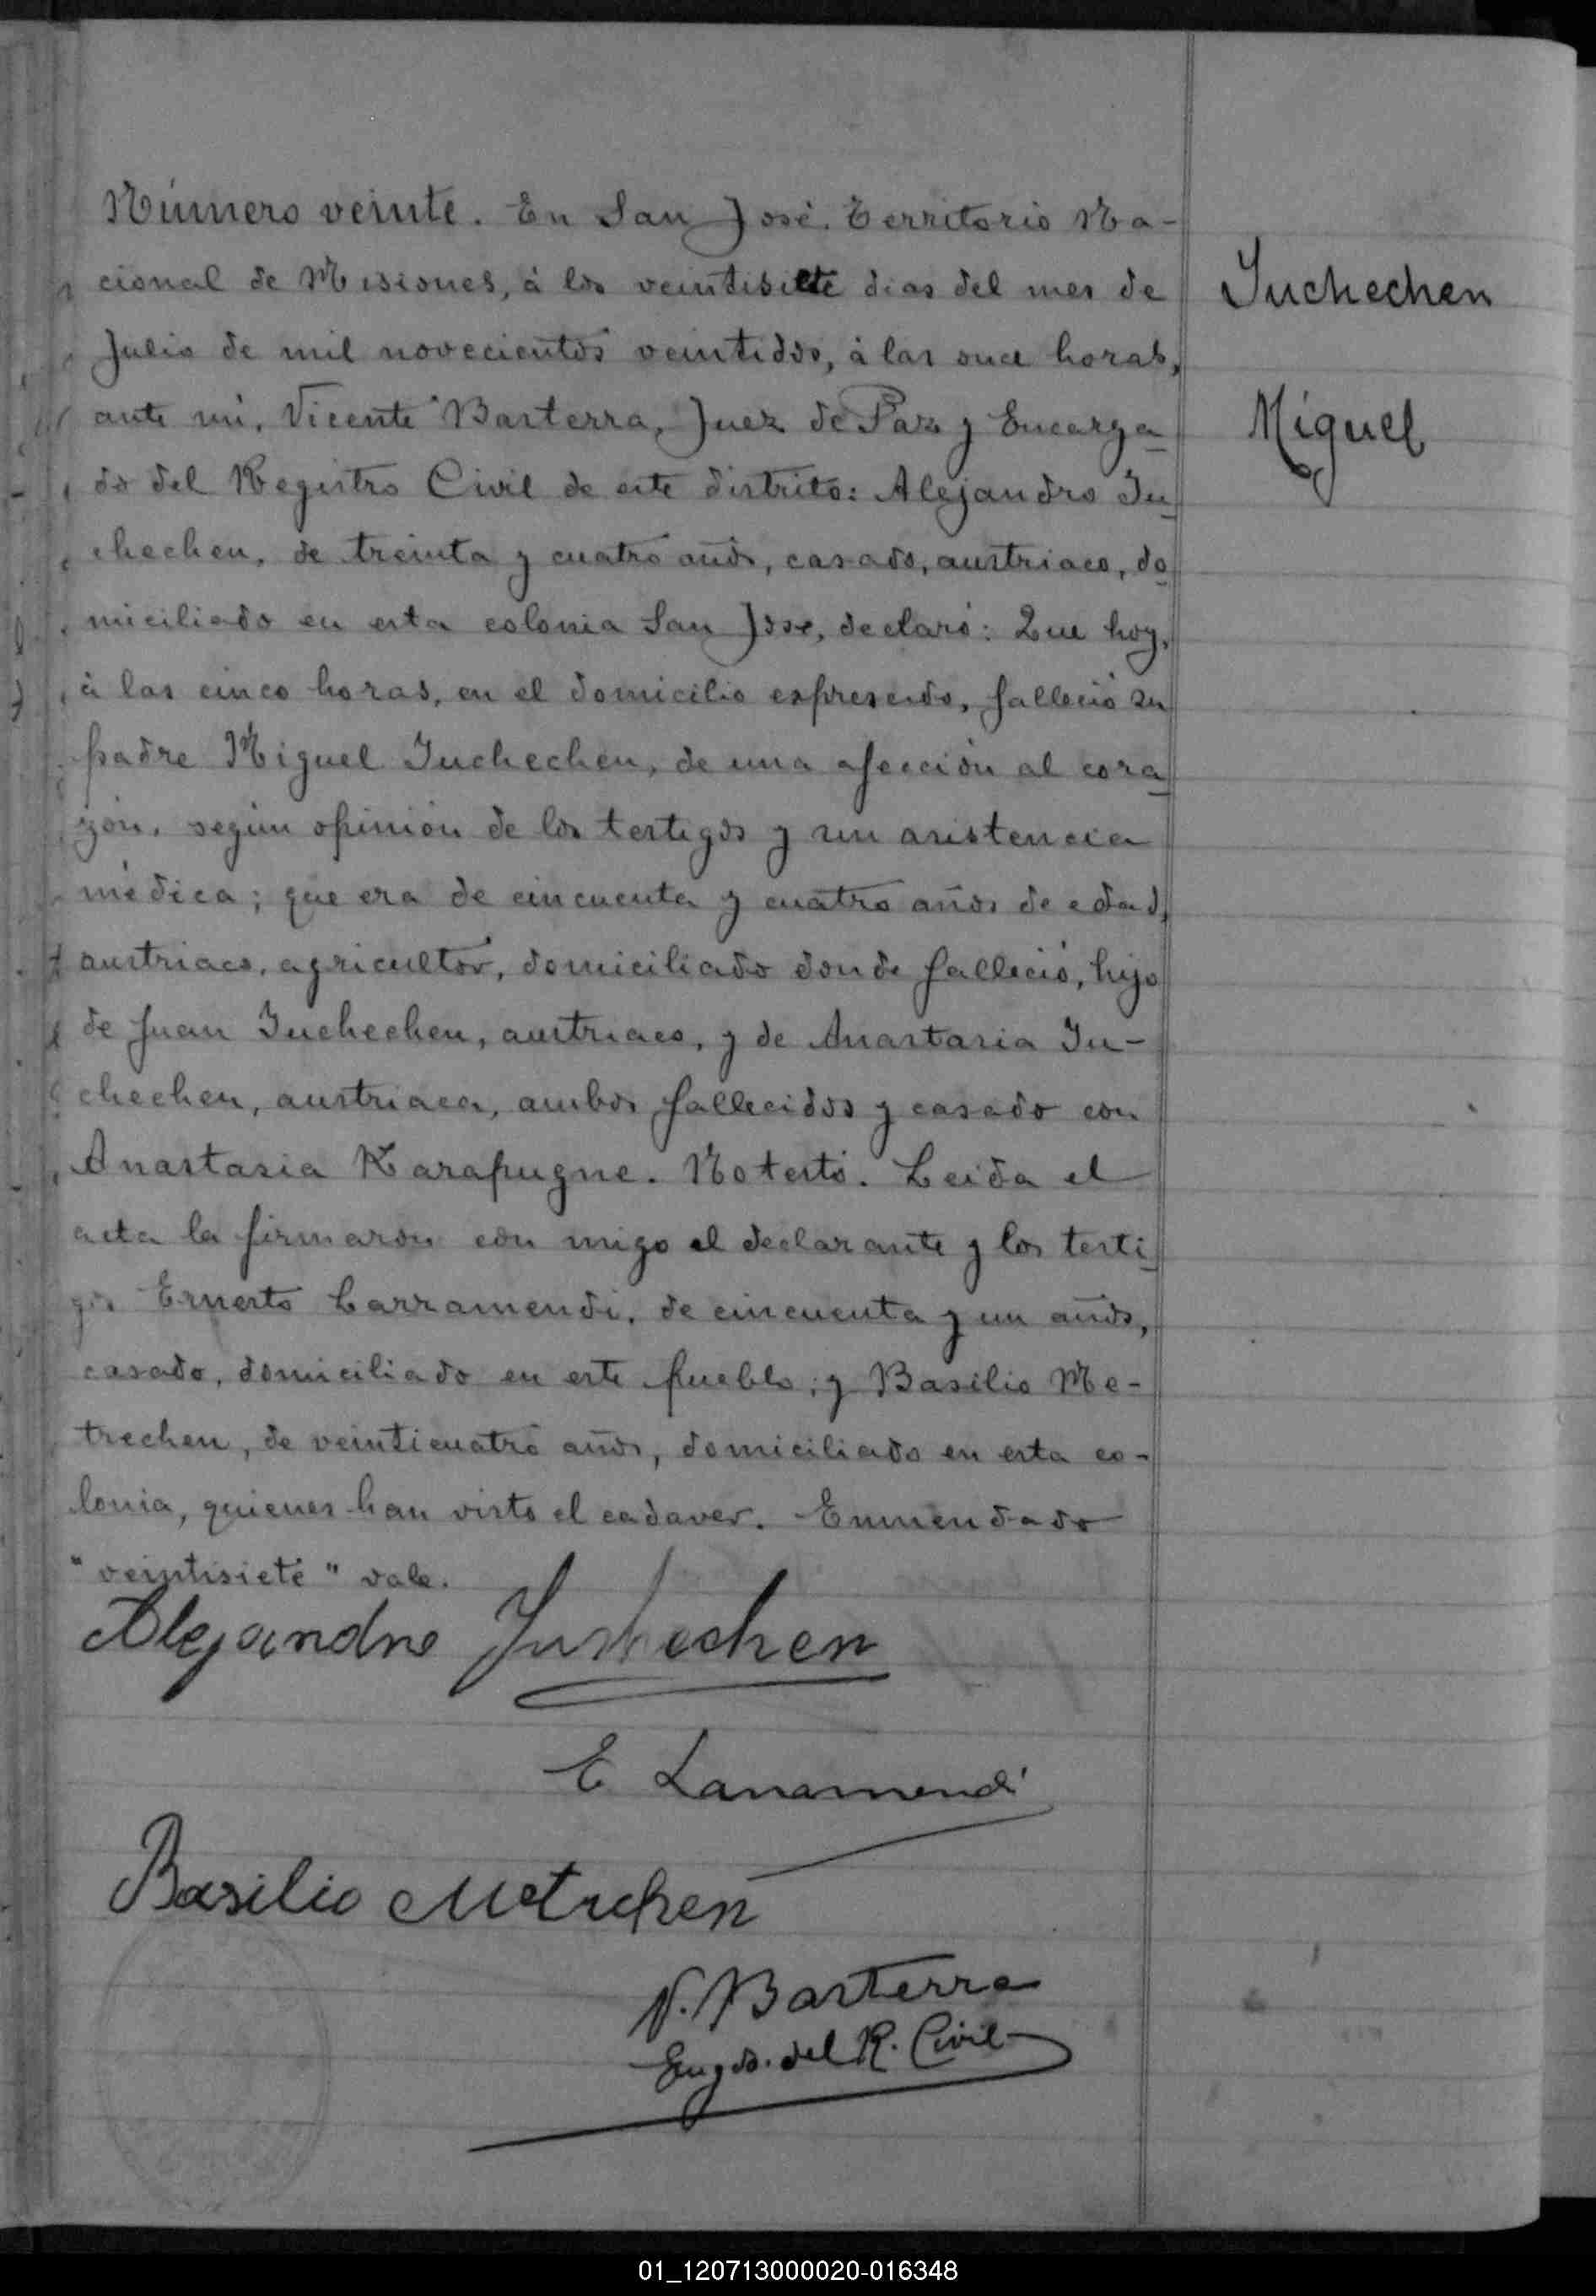 Número veinte. En San José, Territorio Na-
cional de Misiones, á los veintisiete dias del mes de
Julio de mil novecientos veintidós, á las once horas,
ante mi, Vicente Basterra, Juez de Paz y Encarga-
do del Registro Civil de este distrito: Alejandro Ju-
chechen, de treinta y cuatro años, casado, austriaco, do-
miciliado en esta colonia San José, declaró: Que hoy,
á las cinco horas, en el domicilio expresado, falleció su
padre Miguel Juchechen, de una afección al cora-
zón, según opinión de los testigos y sin asistencia
médica; que era de cincuenta y cuatro años de edad,
austriaco, agricultor, domiciliado donde falleció, hijo
de Juan Juchechen, austriaco, y de Anastasia Ju-
chechen, austriaca, ambos fallecidos y casado con
Anastasia Karapugne. No testó. Leida el
acta la firmaron con migo el declarante y los testi-
gos Ernesto Larramendi, de cincuenta y un años,
casado, domiciliado en este pueblo; y Basilio Me-
trechen, de veinticuatro años, domiciliado en esta co-
lonia, quienes han visto el cadaver. Enmendado
"veintisiete" vale.
Juchechen
Miguel
Alejandro Juchechen
E Larramendi
Basilio Metrchen
V. Basterra
Engdo. del R. Civil
01_120713000020-016348